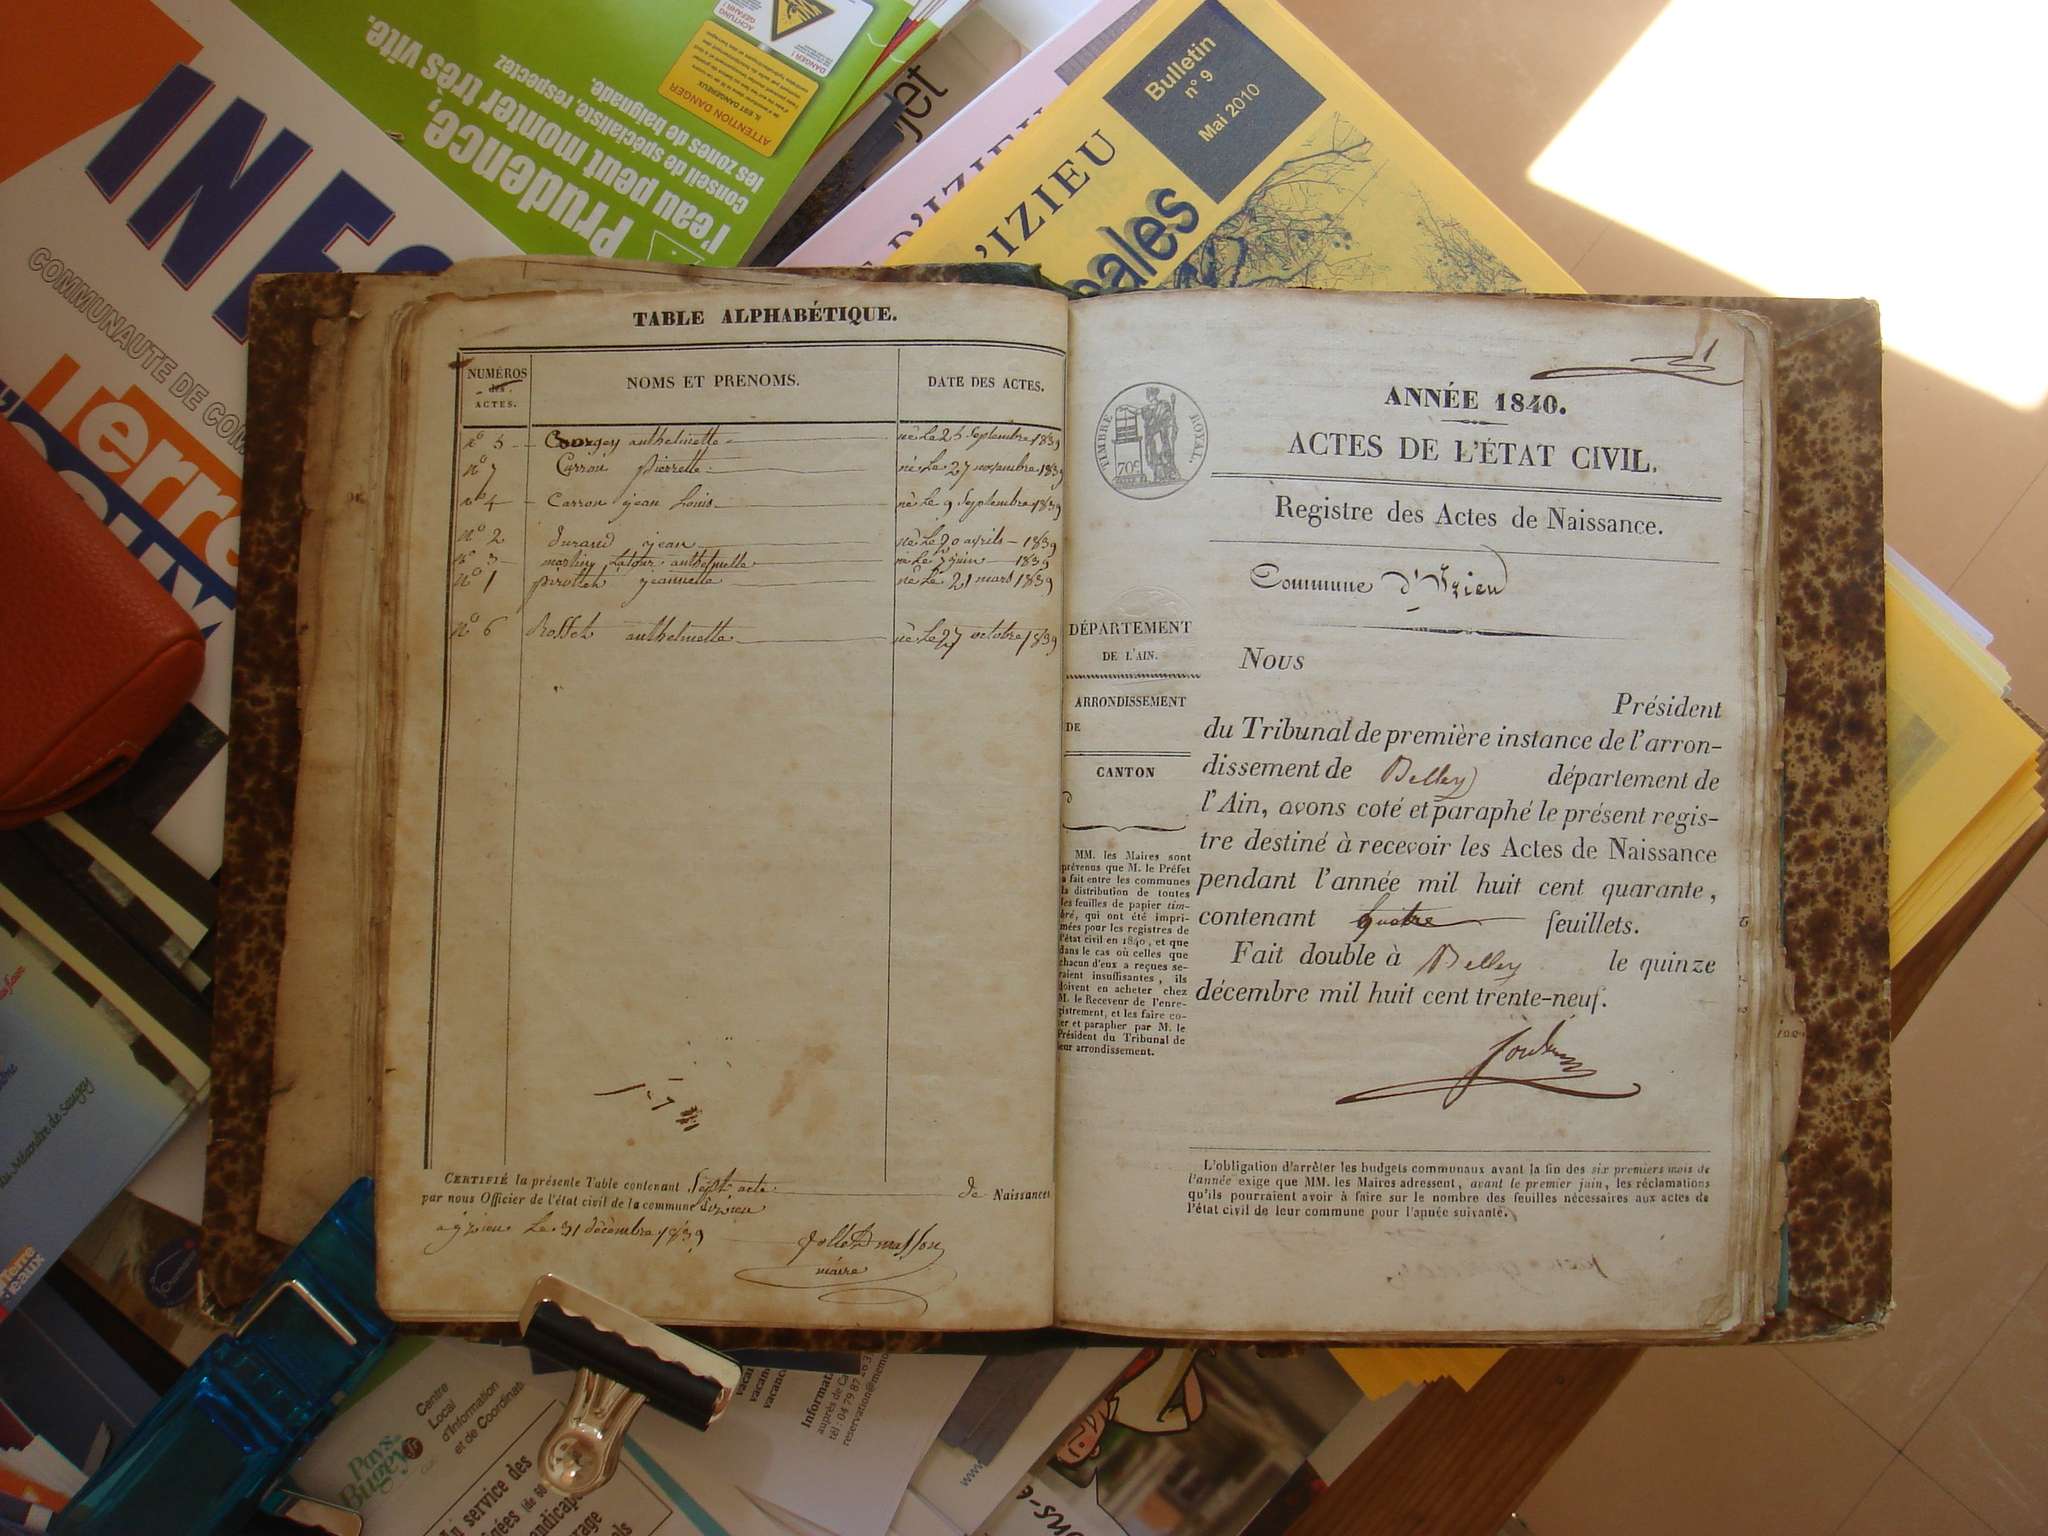 INFO
COMMUNAUTE DE COM
Terre
Prudence,
l'eau peut monter très vite.
Conseil de spécialiste, respectez
les zones de baignade.
ATTENTION DANGER
Bulletin
n° 9
Mai 2010
D'IZIEU
'IZIEU
pales
TABLE ALPHABÉTIQUE.
NUMÉROS des ACTES. NOMS ET PRENOMS. DATE DES ACTES.
n° 5 anthelmette né le 25 Septembre 1839
n° 7 Carron pierrette né le 27 novembre 1839
n° 4 Carron jean Louis né le 9 Septembre 1839
n° 2 durand jean né le 20 avrils 1839
n° 3 martin Latour anthelmette né le 7 juin 1839
n° 1 pirollet jeannette né le 21 mars 1839
n° 6 Rosset anthelmette né le 27 octobre 1839
CERTIFIÉ la présente Table contenant Sept acte de Naissances
par nous Officier de l'état civil de la commune d'izieu
a yzieu le 31 décembre 1839
maire
1
TIMBRE ROYAL.
70c
ANNÉE 1840.
ACTES DE L'ÉTAT CIVIL.
Registre des Actes de Naissance.
Commune d'Izieu
DÉPARTEMENT
DE L'AIN.
ARRONDISSEMENT
DE
CANTON
d
MM. les Maires sont
prévenus que M. le Préfet
a fait entre les communes
la distribution de toutes
les feuilles de papier tim-
bré, qui ont été impri-
mées pour les registres de
l'état civil en 1840, et que
dans le cas où celles que
chacun d'eux a reçues se-
raient insuffisantes, ils
doivent en acheter chez
M. le Receveur de l'enre-
gistrement, et les faire co-
ter et parapher par M. le
Président du Tribunal de
leur arrondissement.
Nous
Président
du Tribunal de première instance de l'arron-
dissement de Belley département de
l'Ain, avons coté et paraphé le présent regis-
tre destiné à recevoir les Actes de Naissance
pendant l'année mil huit cent quarante,
contenant quatre feuillets.
Fait double à Belley le quinze
décembre mil huit cent trente-neuf.
L'obligation d'arrêter les budgets communaux avant la fin des six premiers mois de
l'année exige que MM. les Maires adressent, avant le premier juin, les réclamations
qu'ils pourraient avoir à faire sur le nombre des feuilles nécessaires aux actes de
l'état civil de leur commune pour l'année suivante.
Centre
Local
d'Information
et de Coordinat
Pays
Bugey
service des
Informat
auprès de Ca
tél : 04 79 87 2
reservation@memo
www.